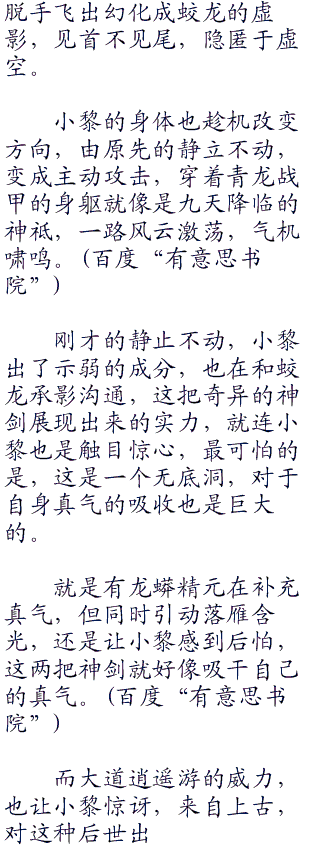 脱手飞出幻化成蛟龙的虚
影，见首不见尾，隐匿于虚
空。
小黎的身体也趁机改变
方向，由原先的静立不动，
变成主动攻击，穿着青龙战
甲的身躯就像是九天降临的
神祗，一路风云激荡，气机
啸鸣。(百度“有意思书
院”)
刚才的静止不动，小黎
出了示弱的成分，也在和蛟
龙承影沟通，这把奇异的神
剑展现出来的实力，就连小
黎也是触目惊心，最可怕的
是，这是一个无底洞，对于
自身真气的吸收也是巨大
的。
就是有龙蟒精元在补充
真气，但同时引动落雁含
光，还是让小黎感到后怕，
这两把神剑就好像吸干自己
的真气。(百度“有意思书
院”)
而大道逍遥游的威力，
也让小黎惊讶，来自上古，
对这种后世出